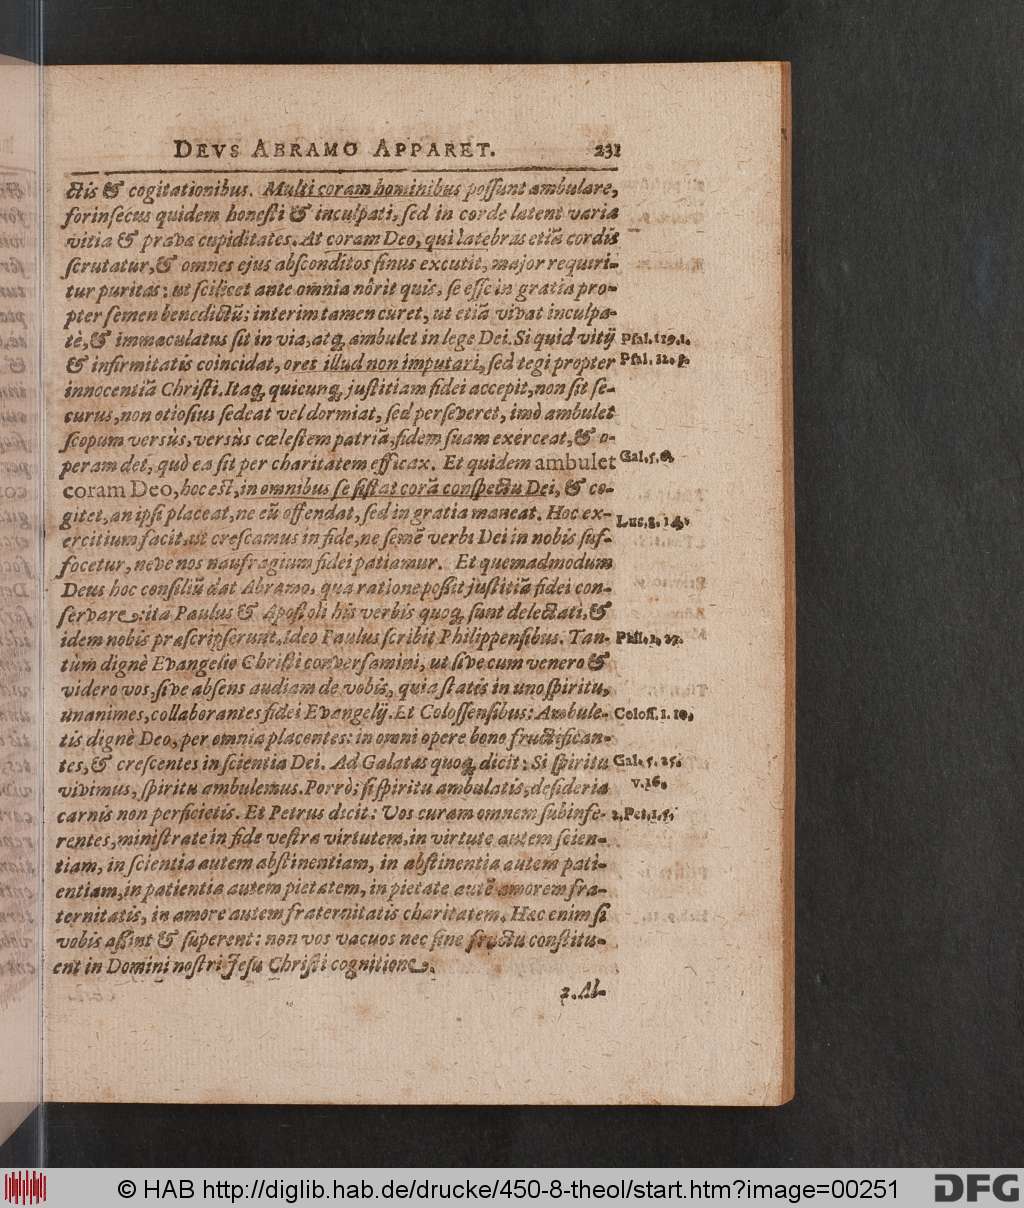 DEVS ABRAMO APPARET. 231
ctis & cogitationibus. Multi coram hominibus possunt ambulare,
forinsecus quidem honesti & inculpati, sed in corde latent varia
vitia & prava cupiditates. At coram Deo, qui latebras etiã cordis
scrutatur, & omnes ejus absconditos sinus excutit, major requiri-
tur puritas: ut scilicet ante omnia nôrit quis, se esse in gratia pro-
pter semen benedictũ; interim tamen curet, ut etiã vivat inculpa-
tè, & immaculatus sit in via, atq; ambulet in lege Dei. Si quid vitij Psal. 119. 1.
& infirmitatis coincidat, oret illud non imputari, sed tegi propter Psal. 32. 1.
innocentiã Christi. Itaq; quicunq; justitiam fidei accepit, non sit se-
curus, non otiosius sedeat vel dormiat, sed perseveret, imò ambulet
scopum versùs, versùs cœlestem patriã, fidem suam exerceat, & o-
peram det, quò ea sit per charitatem efficax. Et quidem ambulet Gal. 5. 6.
coram Deo, hoc est, in omnibus se sistat corã conspectu Dei, & co-
gitet, an ipsi placeat, ne eũ offendat, sed in gratia maneat. Hoc ex- Luc. 8. 14.
ercitium facit, ut crescamus in fide, ne semẽ verbi Dei in nobis suf-
focetur, neve nos naufragium fidei patiamur. Et quemadmodum
Deus hoc consiliũ dat Abramo, qua ratione possit justitiã fidei con-
servare: ita Paulus & Apostoli his verbis quoq; sunt delectati, &
idem nobis præscripserunt. Ideo Paulus scribit Philippensibus. Tan- Phil. 1. 27.
tùm dignè Evangelio Christi conversamini, ut sive cum venero &
videro vos, sive absens audiam de vobis, quia statis in uno spiritu,
unanimes, collaborantes fidei Evangelij. Et Colossensibus: Ambule- Coloss. 1. 10.
tis dignè Deo, per omnia placentes: in omni opere bono fructifican-
tes, & crescentes in scientia Dei. Ad Galatas quoq; dicit: Si spiritu Gal. 5. 25.
vivimus, spiritu ambulemus. Porrò; si spiritu ambulatis, desideria v. 16.
carnis non perficietis. Et Petrus dicit: Vos curam omnem subinfe- 2. Pet. 1. 5.
rentes, ministrate in fide vestra virtutem, in virtute autem scien-
tiam, in scientia autem abstinentiam, in abstinentia autem pati-
entiam, in patientia autem pietatem, in pietate autẽ amorem fra-
ternitatis, in amore autem fraternitatis charitatem. Hæc enim si
vobis assint & superent: non vos vacuos nec sine fructu constitu-
ent in Domini nostri Jesu Christi cognitione.
2. Al-
© HAB http://diglib.hab.de/drucke/450-8-theol/start.htm?image=00251
DFG